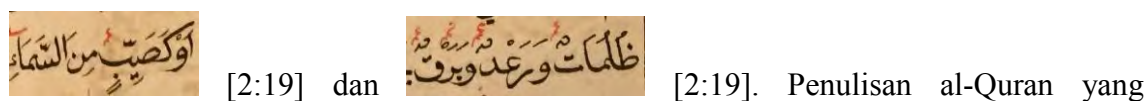 أَوْكَصَيِّبٍ مِنَ السَّمَاءِ [2:19] dan ظُلُمَاتٌ وَرَعْدٌ وَبَرْقٌ [2:19]. Penulisan al-Quran yang